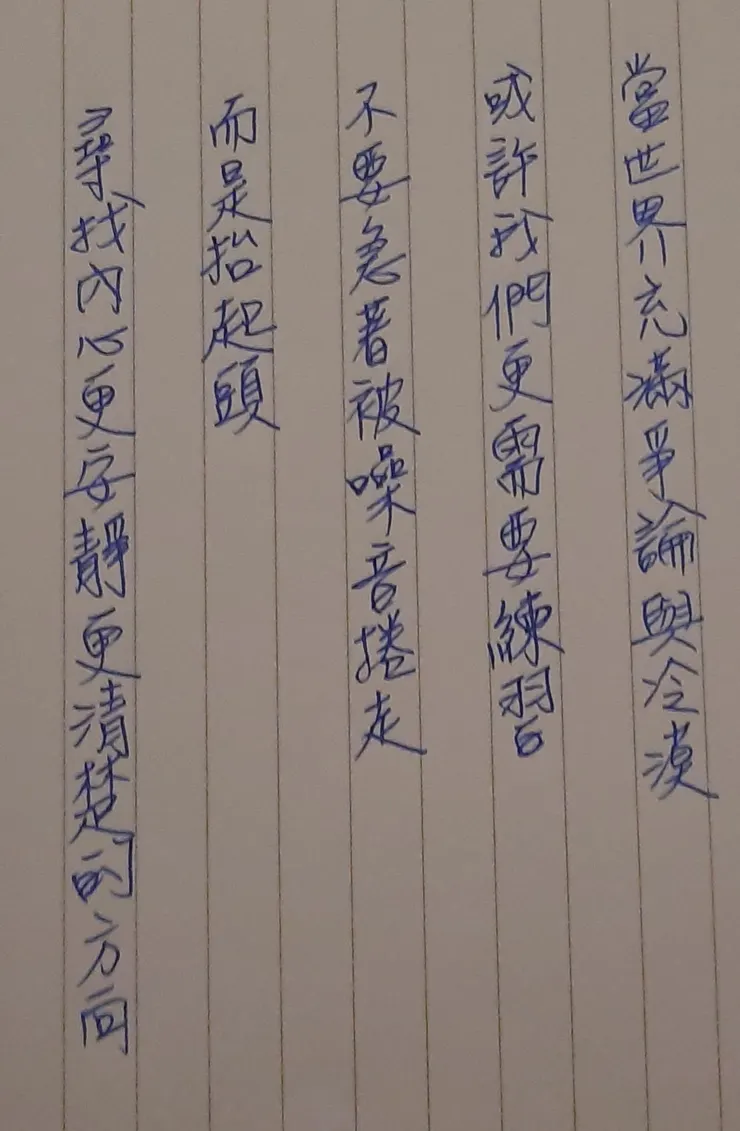 當世界充滿爭論與冷漠
或許我們更需要練習
不要急著被噪音捲走
而是抬起頭
尋找內心更安靜更清楚的方向